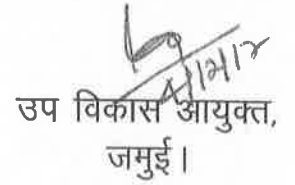 उप विकास आयुक्त,
जमुई।